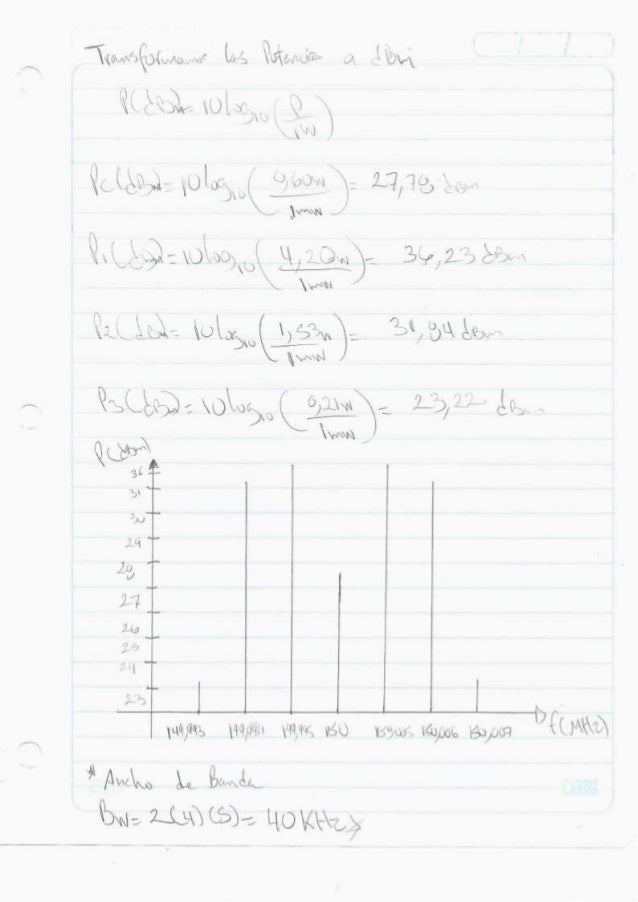 Transformamos las Potencias a dBm
P(dBm)= 10 log10 (P/1W)
Pc(dBm)= 10 log10 (0,60w/1mw) = 27,78 dBm
P1(dBm)= 10 log10 (4,20w/1mw) = 36,23 dBm
P2(dBm)= 10 log10 (1,53w/1mw) = 31,84 dBm
P3(dBm)= 10 log10 (0,21w/1mw) = 23,22 dBm
P(dBm)
36
31
30
29
28
27
26
25
24
23
149,993 149,994 149,995 150 159,005 150,006 150,007 f(MHz)
* Ancho de Banda
BW= 2(4)(5)= 40KHz
CARIBE